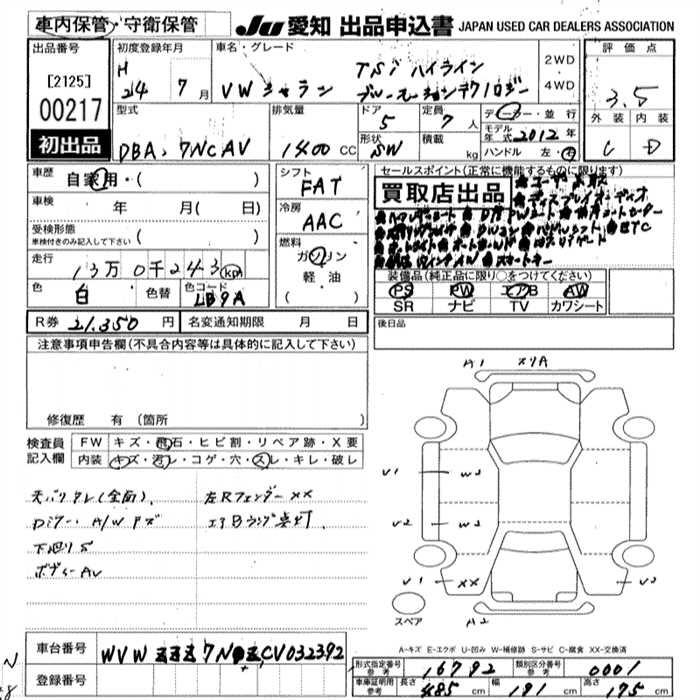 車内保管・守衛保管
JU 愛知 出品申込書 JAPAN USED CAR DEALERS ASSOCIATION
出品番号
[2125]
00217
初出品
初度登録年月
H
24 7月
車名・グレード
VW シャラン
TSi ハイライン
ブルーモーションテクノロジー
2WD
4WD
評価点
3.5
外装 内装
C D
型式
DBA, 7NCAV
排気量
1400 CC
ドア
5
形状
SW
定員
7人
積載
kg
ディーラー・並行
モデル年式 2012年
ハンドル 左・右
車歴
自家用・( )
車検
年 月( 日)
受検形態
車検付きのみ記入して下さい ( )
走行
13万0千243km
色
白
色替
色コード
LB9A
シフト
FAT
冷房
AAC
燃料
ガソリン
軽油
( )
セールスポイント(正常に機能するものに限ります)
買取店出品
装備品(純正品に限り○をつけてください)
PS PW エアB AW
SR ナビ TV カワシート
R券 21,350円
名変通知期限 月 日
後日品
注意事項申告欄(不具合内容等は具体的に記入して下さい)
修復歴 有(箇所 )
検査員
記入欄
FW キズ・飛石・ヒビ割・リペア跡・X要
内装 キズ・汚レ・コゲ・穴・スレ・キレ・破レ
天バリタレ(全面).
左Rフェンダー XX
A/Wキズ
エアBランプ点灯
下廻りS
ボディーAV
A1
メリA
V1 W3
V2 W3
V1 XX
V3
A2
スペア
A-キズ E-エクボ U-凹み W-補修跡 S-サビ C-腐食 XX-交換済
車台番号
WVWZZZ7NZCV032392
登録番号
形式指定番号
参考
16792
類別区分番号
参考
0001
車庫証明用
参考
長さ 485cm
幅 191cm
高さ 175cm